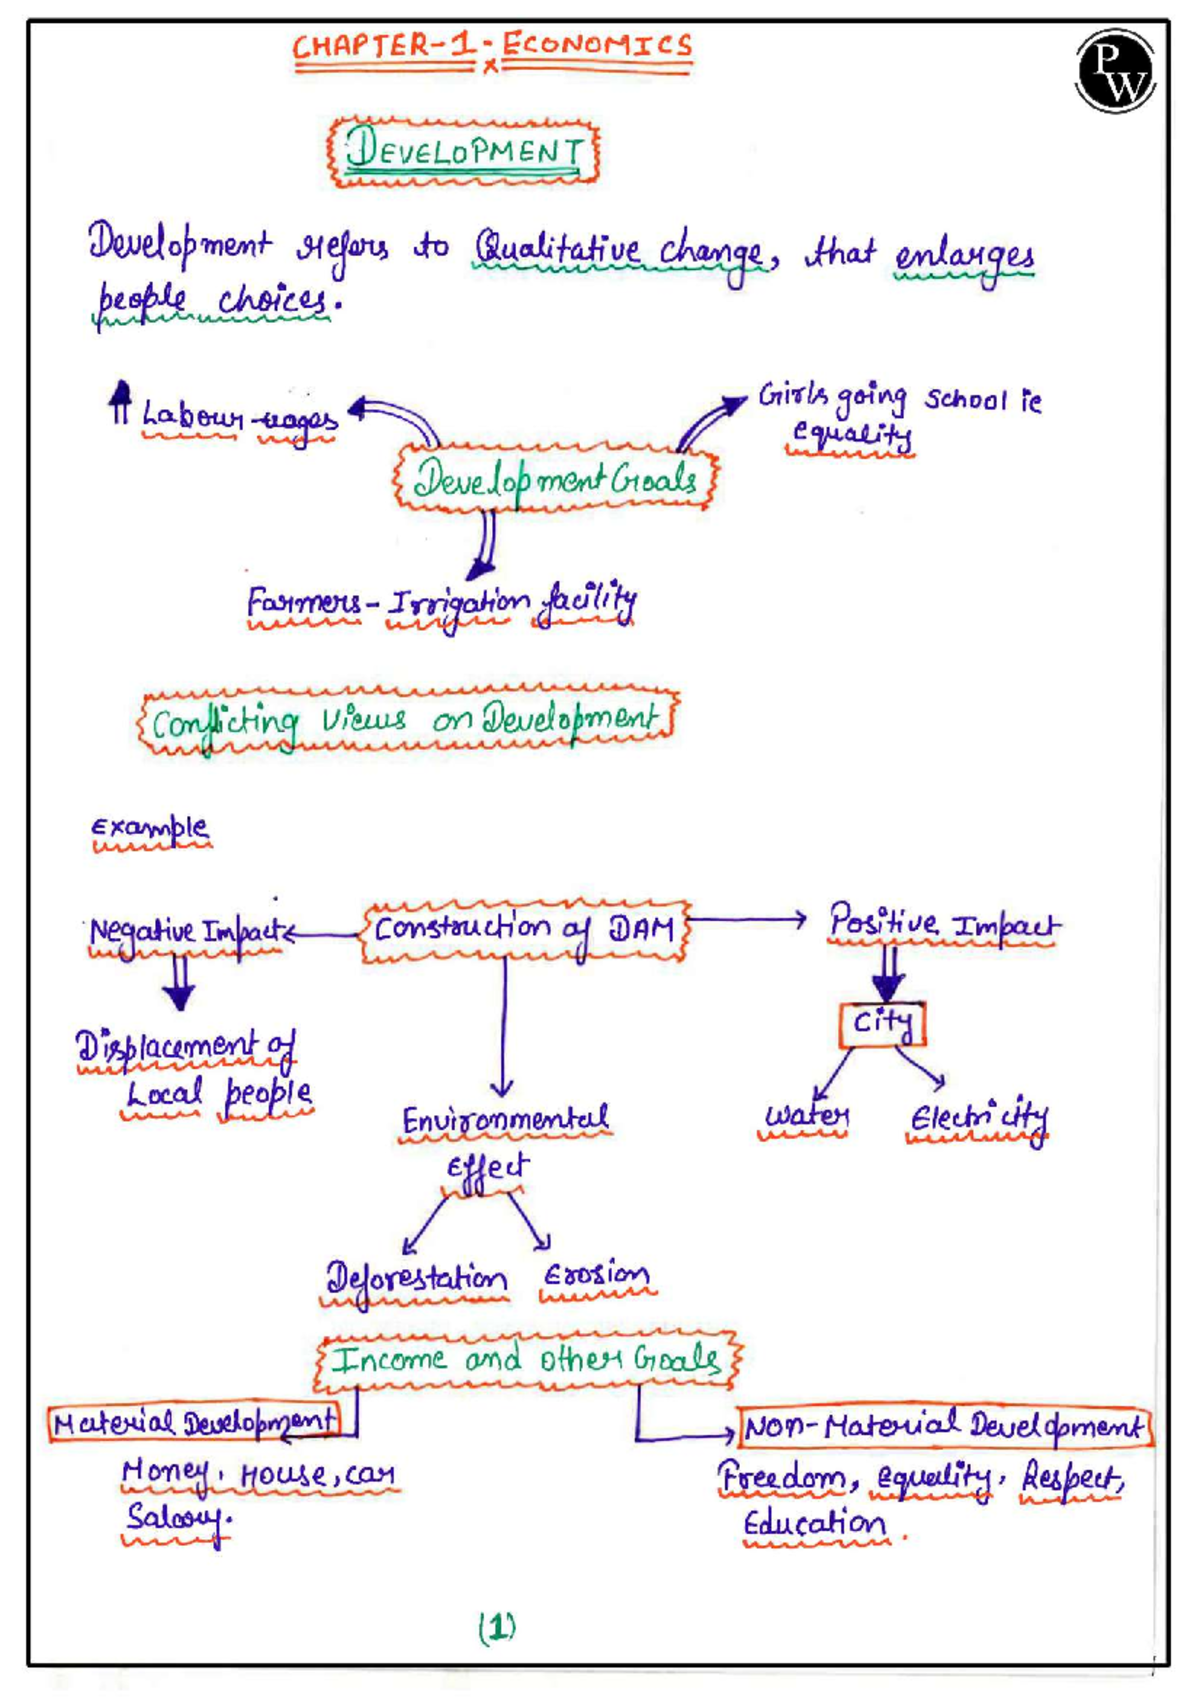 CHAPTER-1-ECONOMICS
PW
DEVELOPMENT
Development refers to Qualitative change, that enlarges
people choices.
Labour-wages
Girls going school ie
equality
Development Goals
Farmers-Irrigation facility
Conflicting Views on Development
Example
Negative Impact
Construction of DAM
Positive Impact
City
Displacement of
Local people
Water
Electricity
Environmental
Effect
Deforestation
Erosion
Income and other Goals
Material Development
Non-Material Development
Money, House, car
Salary.
Freedom, equality, Respect,
Education.
(1)